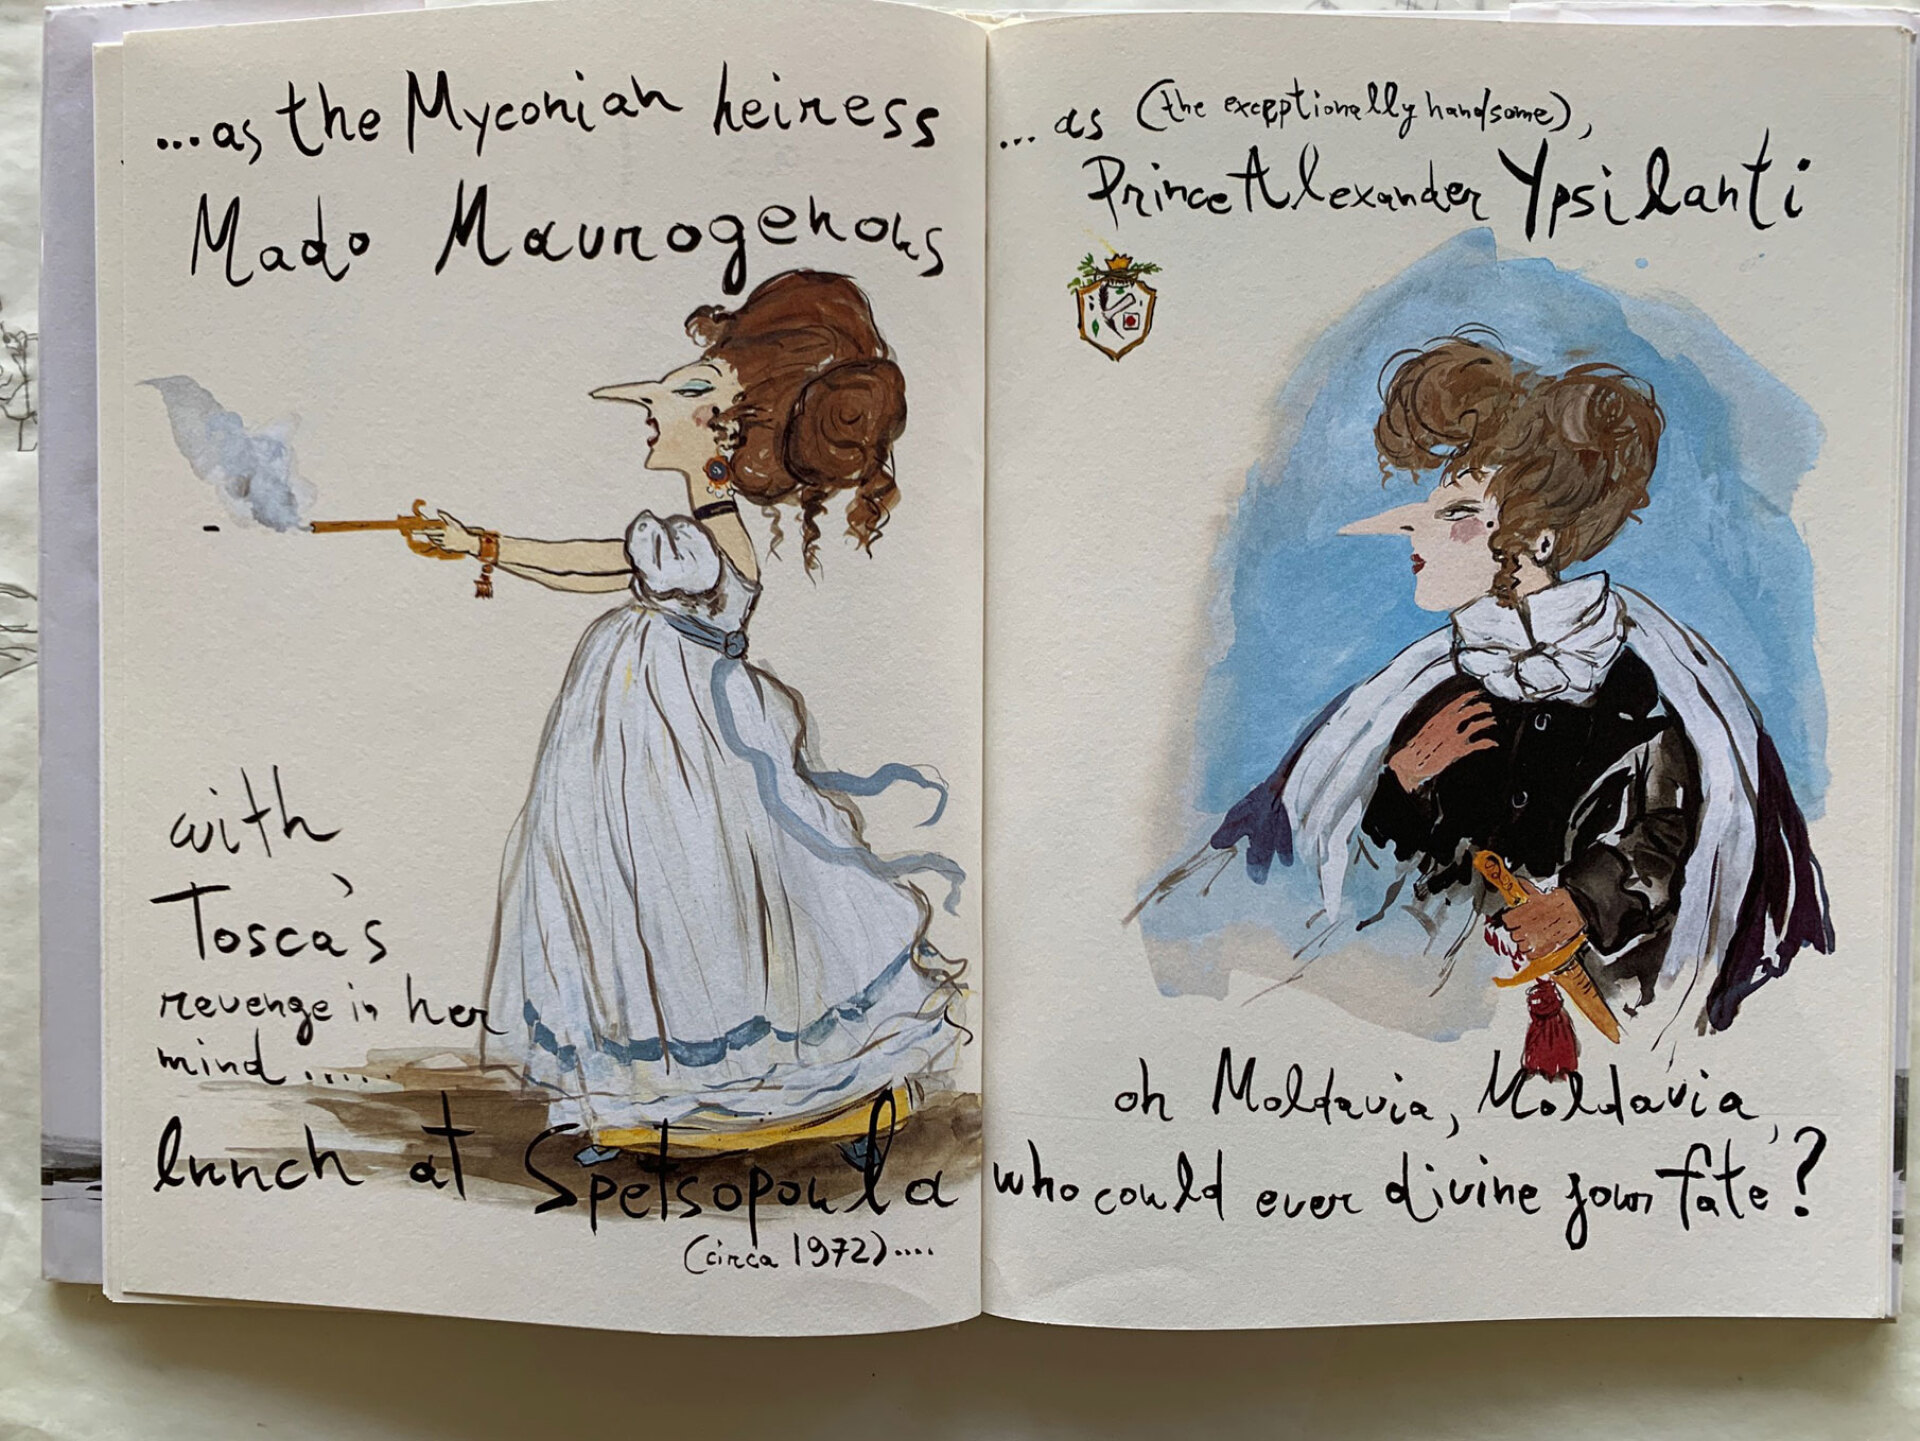 ...as the Myconian heiress
Mado Maurogenous
with
Tosca's
revenge in her
mind.....
lunch at Spetsopoula
(circa 1972)....
...as (the exceptionally handsome),
Prince Alexander Ypsilanti
oh Moldavia, Moldavia,
who could ever divine your fate?